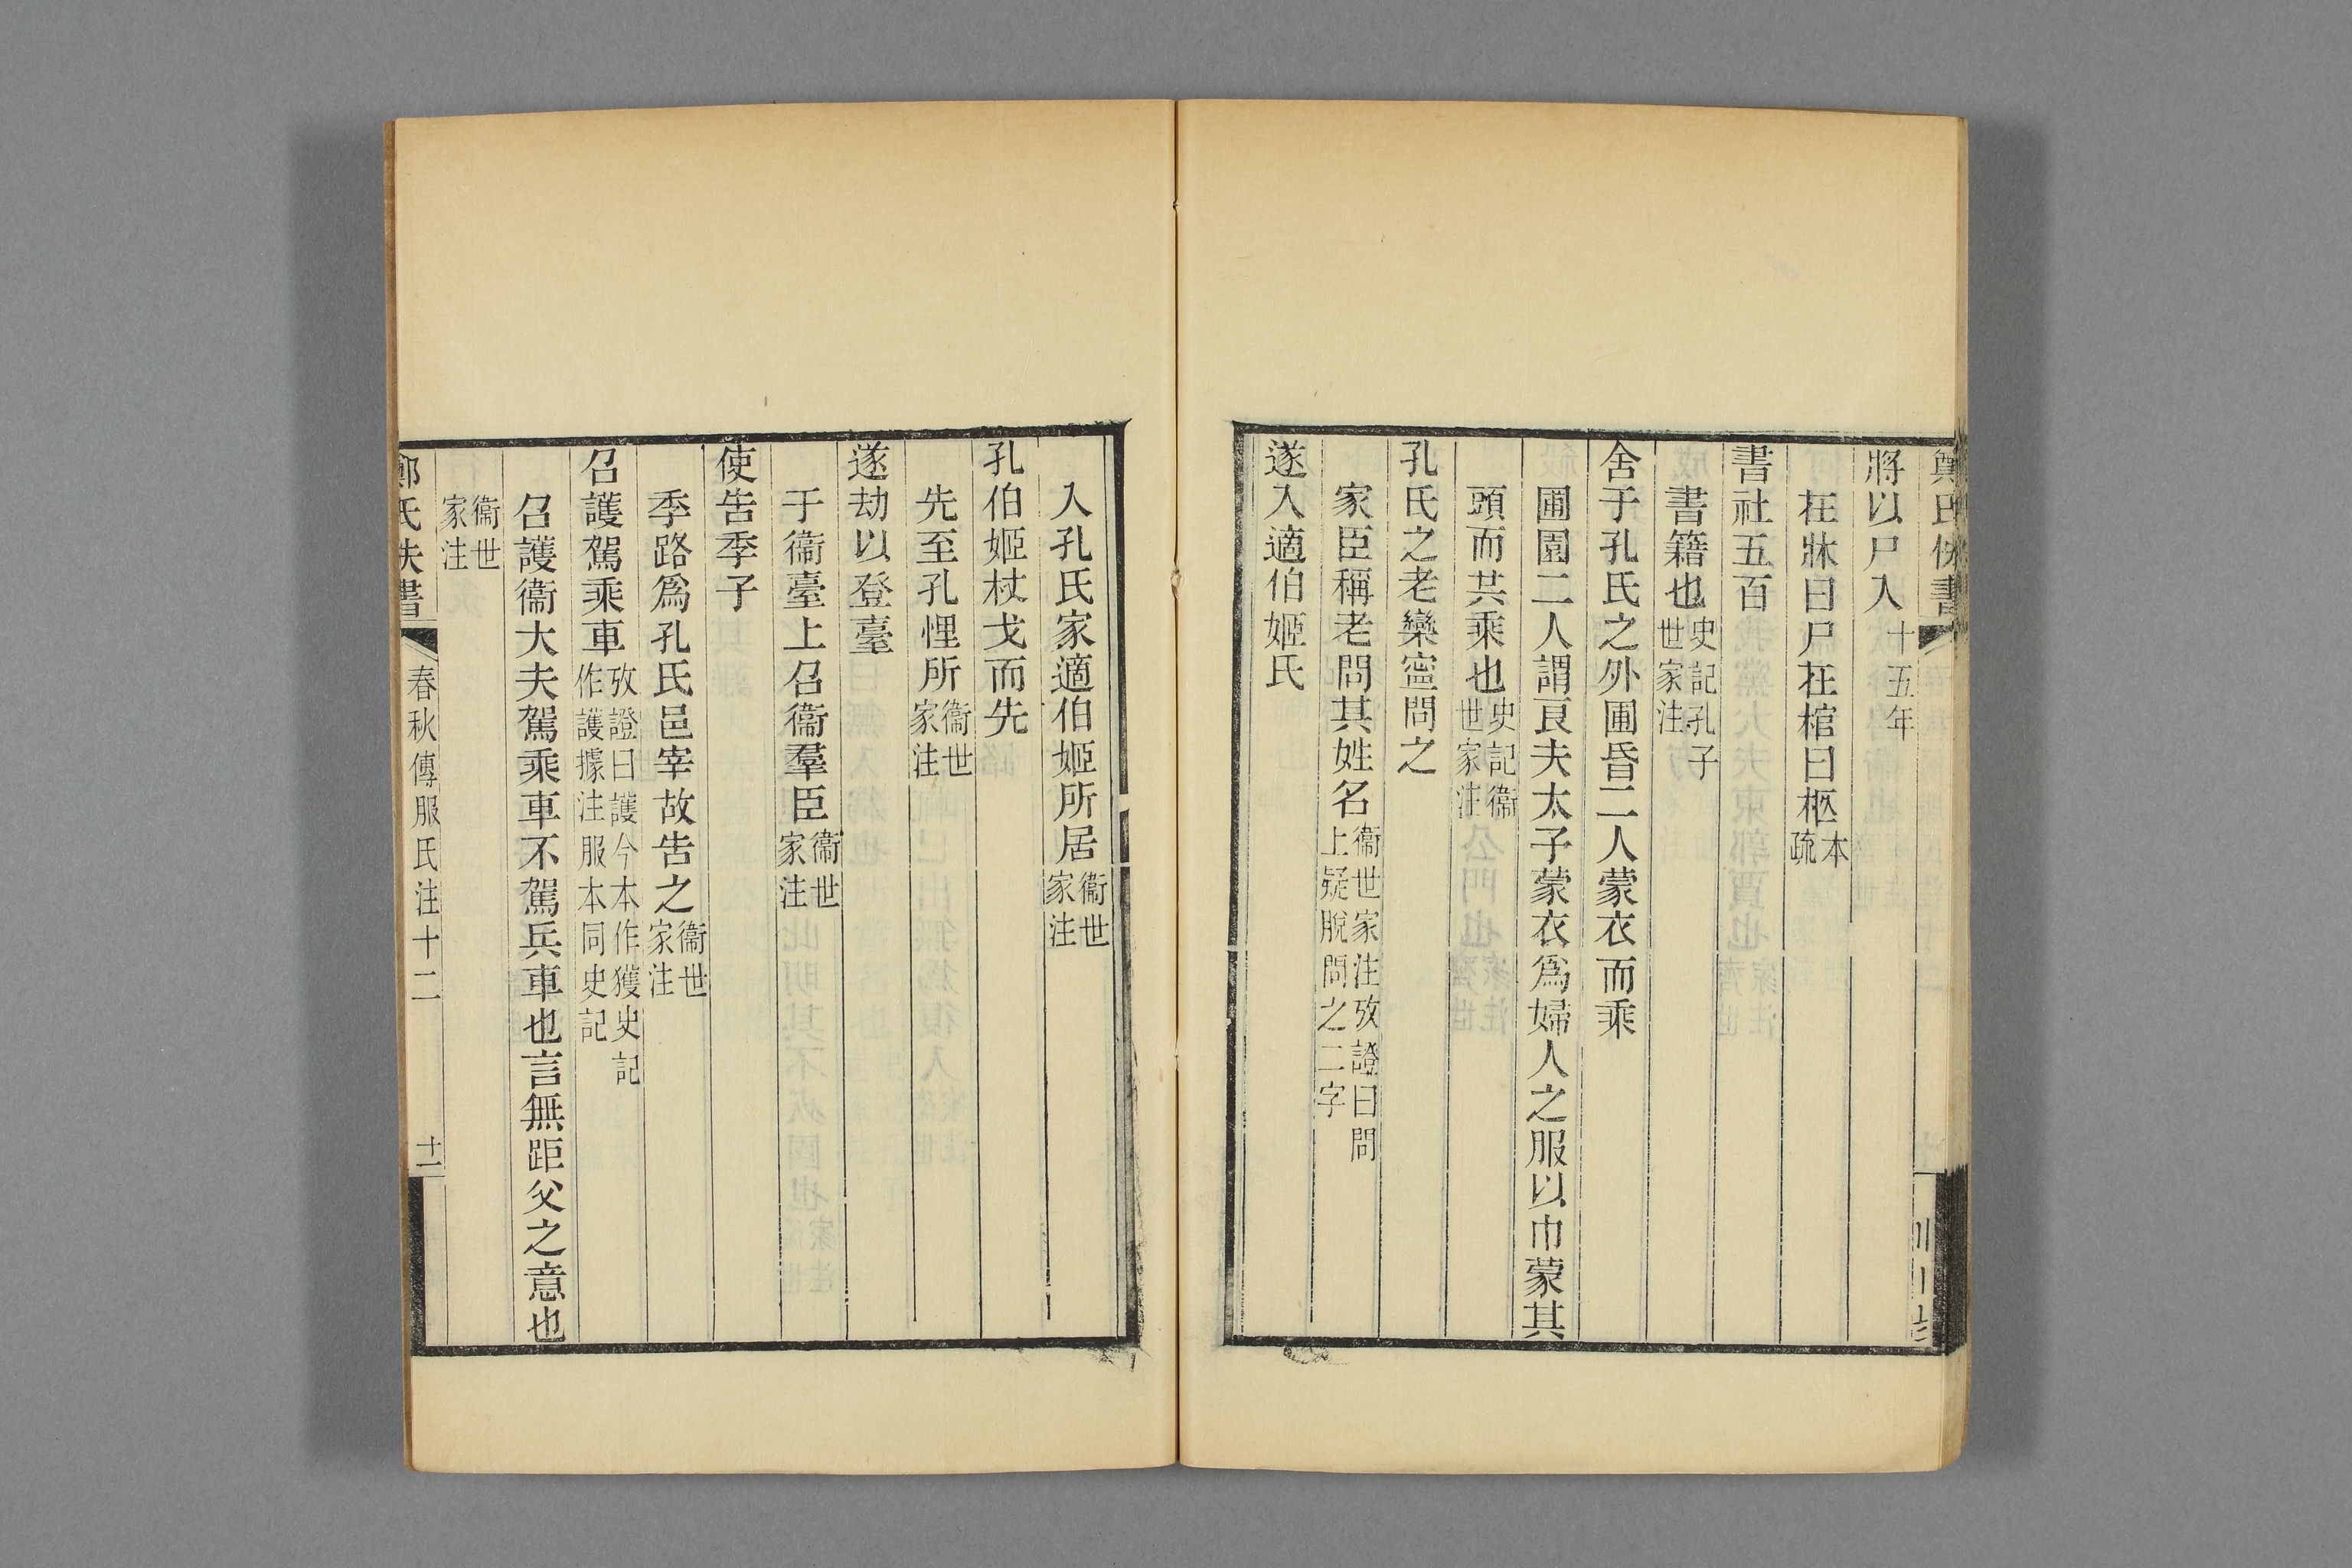 將以尸入十五年
在牀曰尸在棺曰柩本疏
書社五百
書籍也史記孔子世家注
舍于孔氏之外圃昏二人蒙衣而乘
圃園二人謂良夫太子蒙衣爲婦人之服以巾蒙其
頭而共乘也史記衞世家注
孔氏之老欒寍問之
家臣稱老問其姓名衞世家注攷證曰問上疑脫問之二字
遂入適伯姬氏
入孔氏家適伯姬所居衞世家注
孔伯姬杖戈而先
先至孔悝所衞世家注
遂劫以登臺
于衞臺上召衞羣臣衞世家注
使告季子
季路爲孔氏邑宰故告之衞世家注
召護駕乘車攷證曰護今本作獲史記作護據注服本同史記
召護衞大夫駕乘車不駕兵車也言無距父之意也
衞世家注
鄭氏佚書
春秋傳服氏注十二
十一